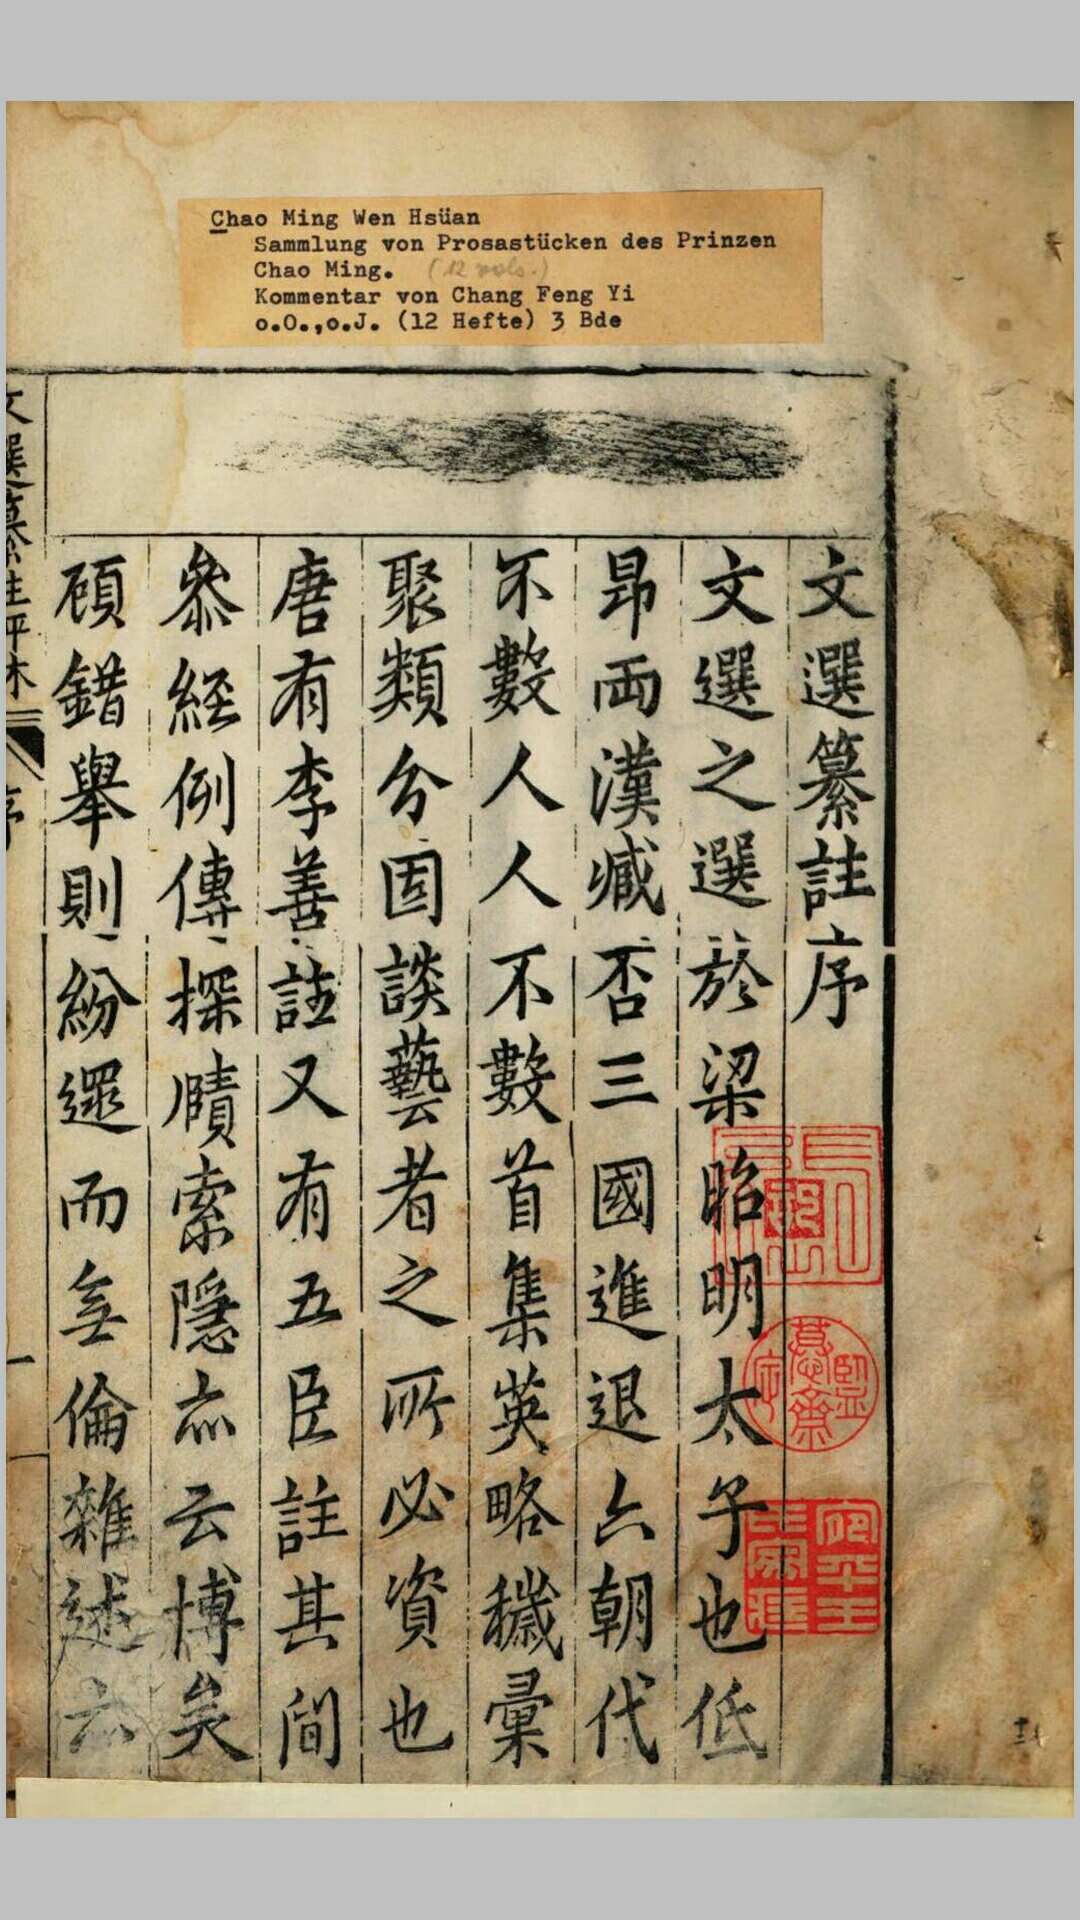 Chao Ming Wen Hsüan
Sammlung von Prosastücken des Prinzen
Chao Ming. (12 vols.)
Kommentar von Chang Feng Yi
o.O.,o.J. (12 Hefte) 3 Bde
文選纂註序
文選之選於梁昭明太子也低
昂両漢臧否三國進退六朝代
不數人人不數首集英略穢彙
聚類分固談藝者之所必資也
唐有李善註又有五臣註其間
叅経例傳探賾索隱亦云博矣
顧錯舉則紛遝而無倫雜述六
文選纂註評林
序
一